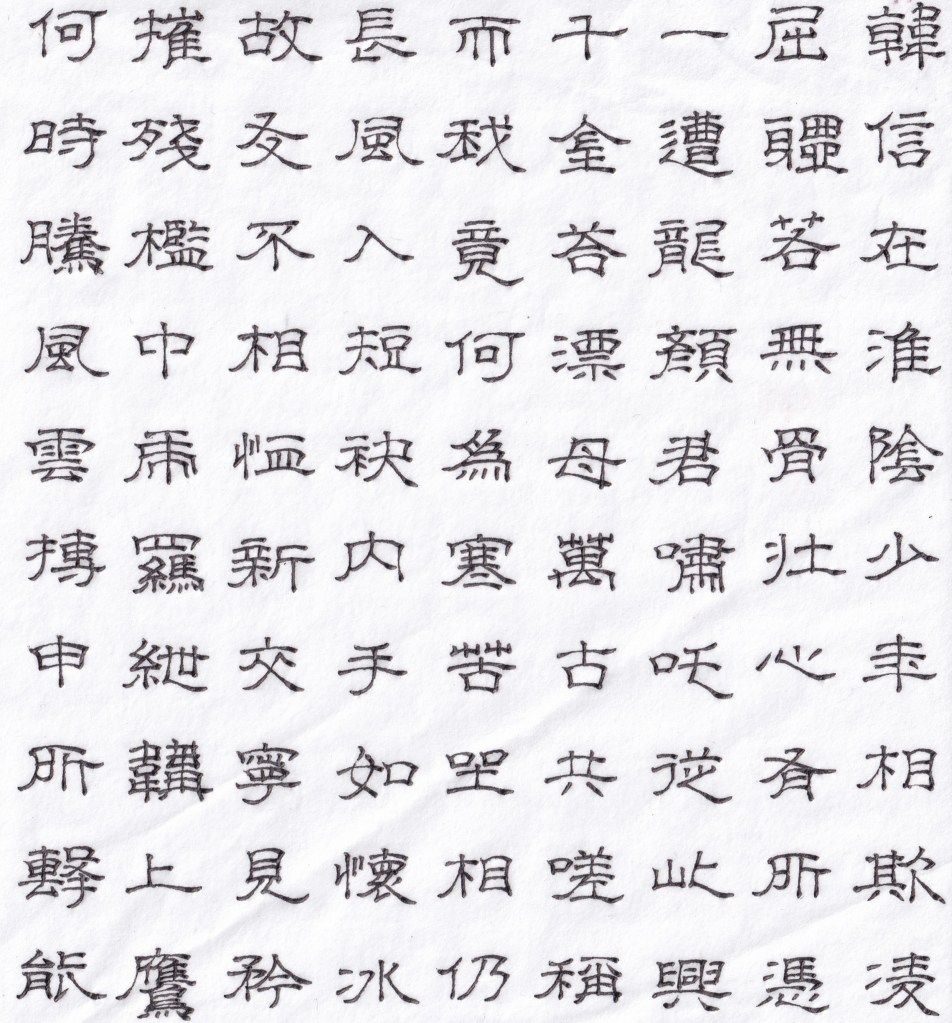 韓信在淮陰少年相欺凌
屈體若無骨壯心有所憑
一遭龍顏君嘯吒從此興
千金荅漂母萬古共嗟稱
而我竟何為寒苦坐相仍
長風入短袂内手如懷冰
故友不相恤新交寧見矜
摧殘檻中虎羈紲韝上鷹
何時騰風雲搏申所擊能